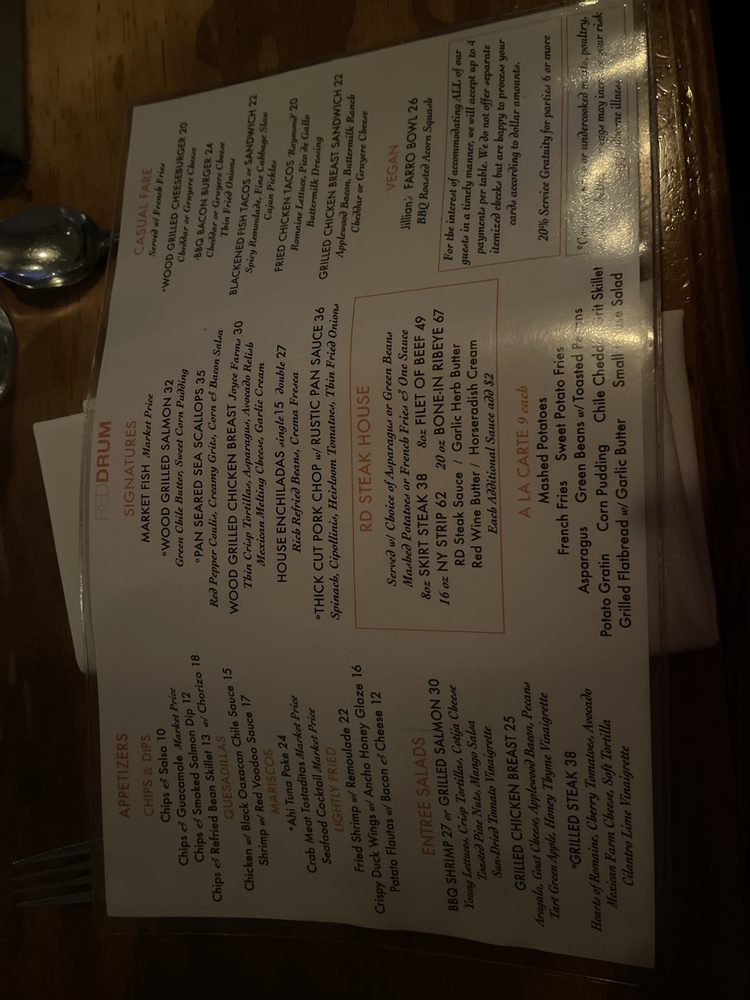 APPETIZERS
CHIPS & DIPS
Chips & Salsa 10
Chips & Guacamole Market Price
Chips & Smoked Salmon Dip 12
Chips & Refried Bean Skillet 13 w/ Chorizo 18
QUESADILLAS
Chicken w/ Black Oaxacan Chile Sauce 15
Shrimp w/ Red Voodoo Sauce 17
MARISCOS
*Ahi Tuna Poke 24
Crab Meat Tostaditas Market Price
Seafood Cocktail Market Price
LIGHTLY FRIED
Fried Shrimp w/ Remoulade 22
Crispy Duck Wings w/ Ancho Honey Glaze 16
Potato Flautas w/ Bacon & Cheese 12
ENTREE SALADS
BBQ SHRIMP 27 or GRILLED SALMON 30
Young Lettuces, Crisp Tortillas, Cotija Cheese
Toasted Pine Nuts, Mango Salsa
Sun-Dried Tomato Vinaigrette
GRILLED CHICKEN BREAST 25
Arugula, Goat Cheese, Applewood Bacon, Pecans
Tart Green Apple, Honey Thyme Vinaigrette
*GRILLED STEAK 38
Hearts of Romaine, Cherry Tomatoes, Avocado
Mexican Farm Cheese, Soft Tortilla
Cilantro Lime Vinaigrette
RED DRUM
SIGNATURES
MARKET FISH Market Price
*WOOD GRILLED SALMON 32
Green Chile Butter, Sweet Corn Pudding
*PAN SEARED SEA SCALLOPS 35
Red Pepper Coulis, Creamy Grits, Corn & Bacon Salsa
WOOD GRILLED CHICKEN BREAST Joyce Farms 30
Thin Crisp Tortillas, Asparagus, Avocado Relish
Mexican Melting Cheese, Garlic Cream
HOUSE ENCHILADAS single 15 double 27
Rich Refried Beans, Crema Fresca
*THICK CUT PORK CHOP w/ RUSTIC PAN SAUCE 36
Spinach, Cipollinis, Heirloom Tomatoes, Thin Fried Onions
RD STEAK HOUSE
Served w/ Choice of Asparagus or Green Beans
Mashed Potatoes or French Fries & One Sauce
8oz SKIRT STEAK 38 8oz FILET OF BEEF 49
16 oz NY STRIP 62 20 oz BONE-IN RIBEYE 67
RD Steak Sauce / Garlic Herb Butter
Red Wine Butter / Horseradish Cream
Each Additional Sauce add $2
A LA CARTE 9 each
Mashed Potatoes
French Fries Sweet Potato Fries
Asparagus Green Beans w/ Toasted Pecans
Potato Gratin Corn Pudding Chile Cheddar Grit Skillet
Grilled Flatbread w/ Garlic Butter Small House Salad
CASUAL FARE
Served w/ French Fries
*WOOD GRILLED CHEESEBURGER 20
Cheddar or Gruyere Cheese
*BBQ BACON BURGER 24
Cheddar or Gruyere Cheese
Thin Fried Onions
BLACKENED FISH TACOS or SANDWICH 22
Spicy Remoulade, Fine Cabbage Slaw
Cajun Pickles
FRIED CHICKEN TACOS 'Raymond' 20
Romaine Lettuce, Pico de Gallo
Buttermilk Dressing
GRILLED CHICKEN BREAST SANDWICH 22
Applewood Bacon, Buttermilk Ranch
Cheddar or Gruyere Cheese
VEGAN
Jillian's FARRO BOWL 26
BBQ Roasted Acorn Squash
For the interest of accommodating ALL of our
guests in a timely manner, we will accept up to 4
payments per table. We do not offer separate
itemized checks but are happy to process your
cards according to dollar amounts.
20% Service Gratuity for parties 6 or more
or undercooked meats, poultry,
eggs may increase your risk
illness